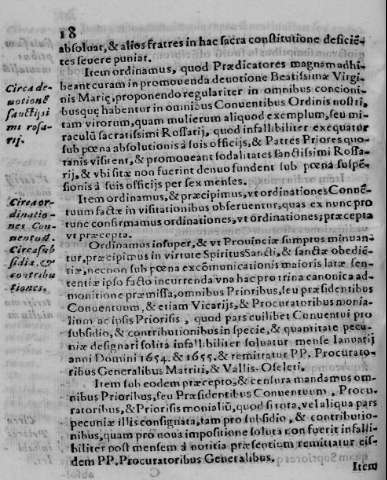 18
absoluat, & alios fratres in hac sacra constitutione deficiẽ-
tes seuere puniat.
Item ordinamus, quod Prædicatores magnam adhi-
beant curam in promouenda deuotione Beatissimæ Virgi-
nis Mariæ, proponendo regulariter in omnibus concioni-
busque habentur in omnibus Conuentibus Ordinis nostri,
tam virorum, quam mulierum aliquod exemplum, seu mi-
raculũ sacratissimi Rossarij, quod infallibiliter exequatur
sub pœna absolutionis à suis officijs, & Patres Priores quo-
tannis visitent, & promoueant sodalitates sanctissimi Rossa-
rij, & vbi sitæ non fuerint denuo fundent sub pœna suspẽ-
sionis à suis officijs per sex menses.
Circa de-
uotionẽ
sanctissi
mi rosa-
rij.
Item ordinamus, & præcipimus, vt ordinationes Conuẽ-
tuum factæ in visitationibus obseruentur, quas ex nunc pro
tunc confirmamus ordinationes, vt ordinationes; præcepta
vt præcepta.
Circa or-
dinatio-
nes Con-
uentuũ.
Ordinamus insuper, & vt Prouinciæ sumptus minuan-
tur, præcipimus in virtute Spiritus Sancti, & sanctæ obediẽ-
tiæ, necnon sub pœna excõmunicationis maioris latæ sen-
tentiæ ipso facto incurrenda vna hac pro trina canonica ad-
monitione præmissa, omnibus Prioribus, seu præsidentibus
Conuentuum, & etiam Vicarijs, & Procuratoribus monia-
lium ac ipsis Priorisis, quod pars cuilibet Conuentui pro
subsidio, & contributionibus in specie, & quantitate pecu-
niæ designari solita infallibiliter soluatur mense Ianuarij
anni Domini 1654. & 1655. & remittatur PP. Procurato-
ribus Generalibus Matriti, & Vallis-Oseleti.
Circa sub
sidia, &
contribu
tiones.
Item sub eodem præcepto, & censura mandamus om-
nibus Prioribus, seu Præsidentibus Conuentuum, Procu-
ratoribus, & Priorisis monialiũ, quod si tota, vel aliqua pars
pecuniæ illis consignata, tam pro subsidio, & contributio-
nibus, quam pro noua impositione soluta non fuerit infalli-
biliter post mensem à notitia præsentium remittatur eis-
dem PP. Procuratoribus Generalibus.
Item